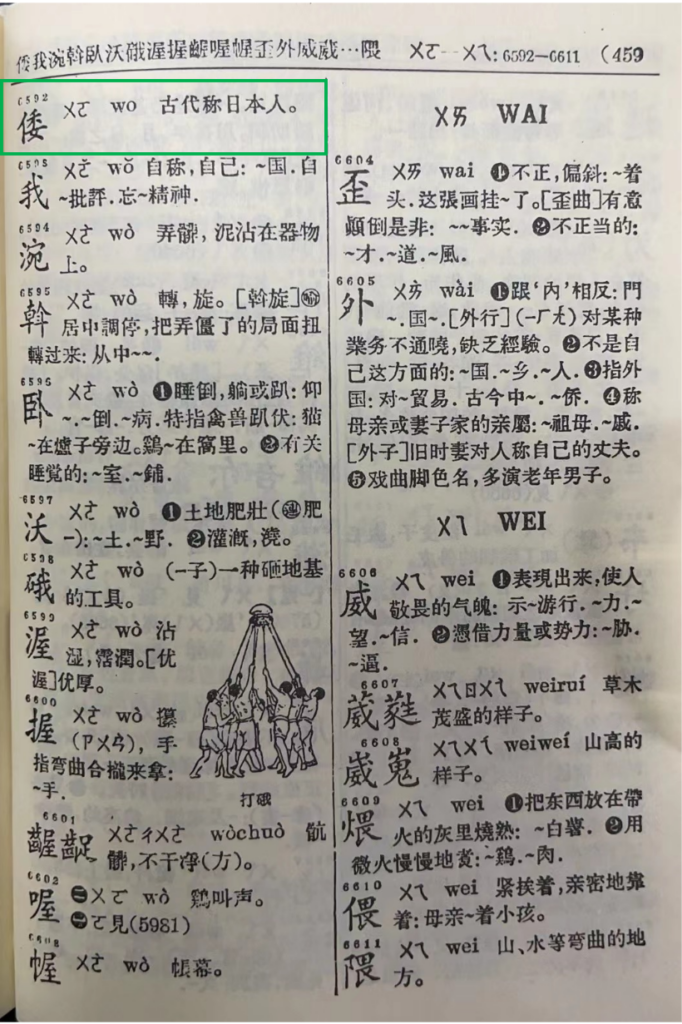 倭我涴斡臥沃硪渥握齷喔幄歪外威葳…隈 ㄨㄛ—ㄨㄟ: 6592—6611 (459
6592
倭 ㄨㄛ wo 古代称日本人。
我 ㄨㄛˇ wǒ 自称,自己: ~国.自
~批評.忘~精神.
6594
涴 ㄨㄛˋ wò 弄髒,泥沾在器物
上。
6595
斡 ㄨㄛˋ wò 轉,旋。[斡旋]
居中調停,把弄僵了的局面扭
轉过来: 从中~~.
卧 ㄨㄛˋ wò ❶睡倒,躺或趴: 仰
~.~倒.~病.特指禽兽趴伏: 猫
~在爐子旁边。鷄~在窩里。❷有关
睡觉的: ~室.~鋪.
6597
沃 ㄨㄛˋ wò ❶土地肥壯(連肥
—): ~土.~野. ❷灌漑,澆。
6598
硪 ㄨㄛˋ wò (—子)一种砸地基
的工具。
6599
渥 ㄨㄛˋ wò 沾
湿,霑潤。[优
渥]优厚。
6600
握 ㄨㄛˋ wò 攥
(ㄗㄨㄢˋ), 手
指弯曲合攏来拿:
~手.
打硪
6601
齷齪 ㄨㄛˋㄔㄨㄛˋ wòchuò 骯
髒,不干净(方)。
6602
喔 ㊀ㄨㄛ wò 鷄叫声。
㊁ㄛ見(5981)
幄 ㄨㄛˋ wò 帳幕。
ㄨㄞ WAI
6604
歪 ㄨㄞ wai ❶不正,偏斜: ~着
头.这張画挂~了。[歪曲]有意
顚倒是非: ~~事实. ❷不正当的:
~才.~道.~風.
6605
外 ㄨㄞˋ wài ❶跟‘內’相反: 門
~.国~.[外行](—ㄏㄤˊ)对某种
業务不通曉,缺乏經驗。❷不是自
己这方面的: ~国.~乡.~人. ❸指外
国: 对~貿易. 古今中~.~侨. ❹称
母亲或妻子家的亲屬: ~祖母.~戚.
[外子]旧时妻对人称自己的丈夫。
❺戏曲脚色名,多演老年男子。
ㄨㄟ WEI
6606
威 ㄨㄟ wei ❶表現出来,使人
敬畏的气魄: 示~游行.~力.~
望.~信. ❷憑借力量或势力: ~胁.
~逼.
6607
葳蕤 ㄨㄟㄖㄨㄟˊ weiruí 草木
茂盛的样子。
6608
崴嵬 ㄨㄟㄨㄟˊ weiweí 山高的
样子。
6609
煨 ㄨㄟ wei ❶把东西放在帶
火的灰里燒熟: ~白薯. ❷用
微火慢慢地煑: ~鷄.~肉.
6610
偎 ㄨㄟ wei 紧挨着,亲密地靠
着: 母亲~着小孩。
6611
隈 ㄨㄟ wei 山、水等弯曲的地
方。